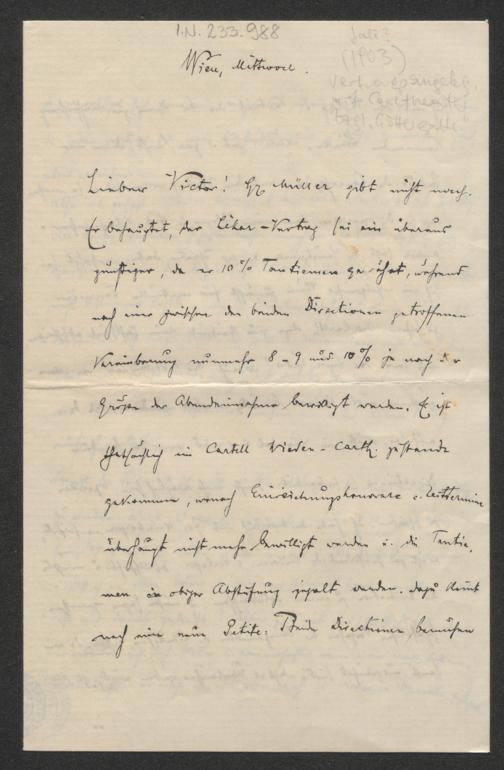 I.N. 233.988
(1903)
Wien, Mittwoch.
Lieber Victor! Hr Müller gibt nicht nach.
Er behauptet, der Lehar-Vertrag sei ein überaus
günstiger, da er 10% Tantiemen gewährt, während
nach einer zwischen den beiden Directionen getroffenen
Vereinbarung nunmehr 8-9 und 10% je nach der
Größe der Abendeinnahme bewilligt werden. Es ist
thatsächlich ein Cartell Wieden-Carlth. zustande
gekommen, wonach Einreichungshonorare
überhaupt nicht mehr bewilligt werden u. die Tantie,
men in obiger Abstufung gezahlt werden. Dazu kommt
noch eine neue Petite: Beide Directionen